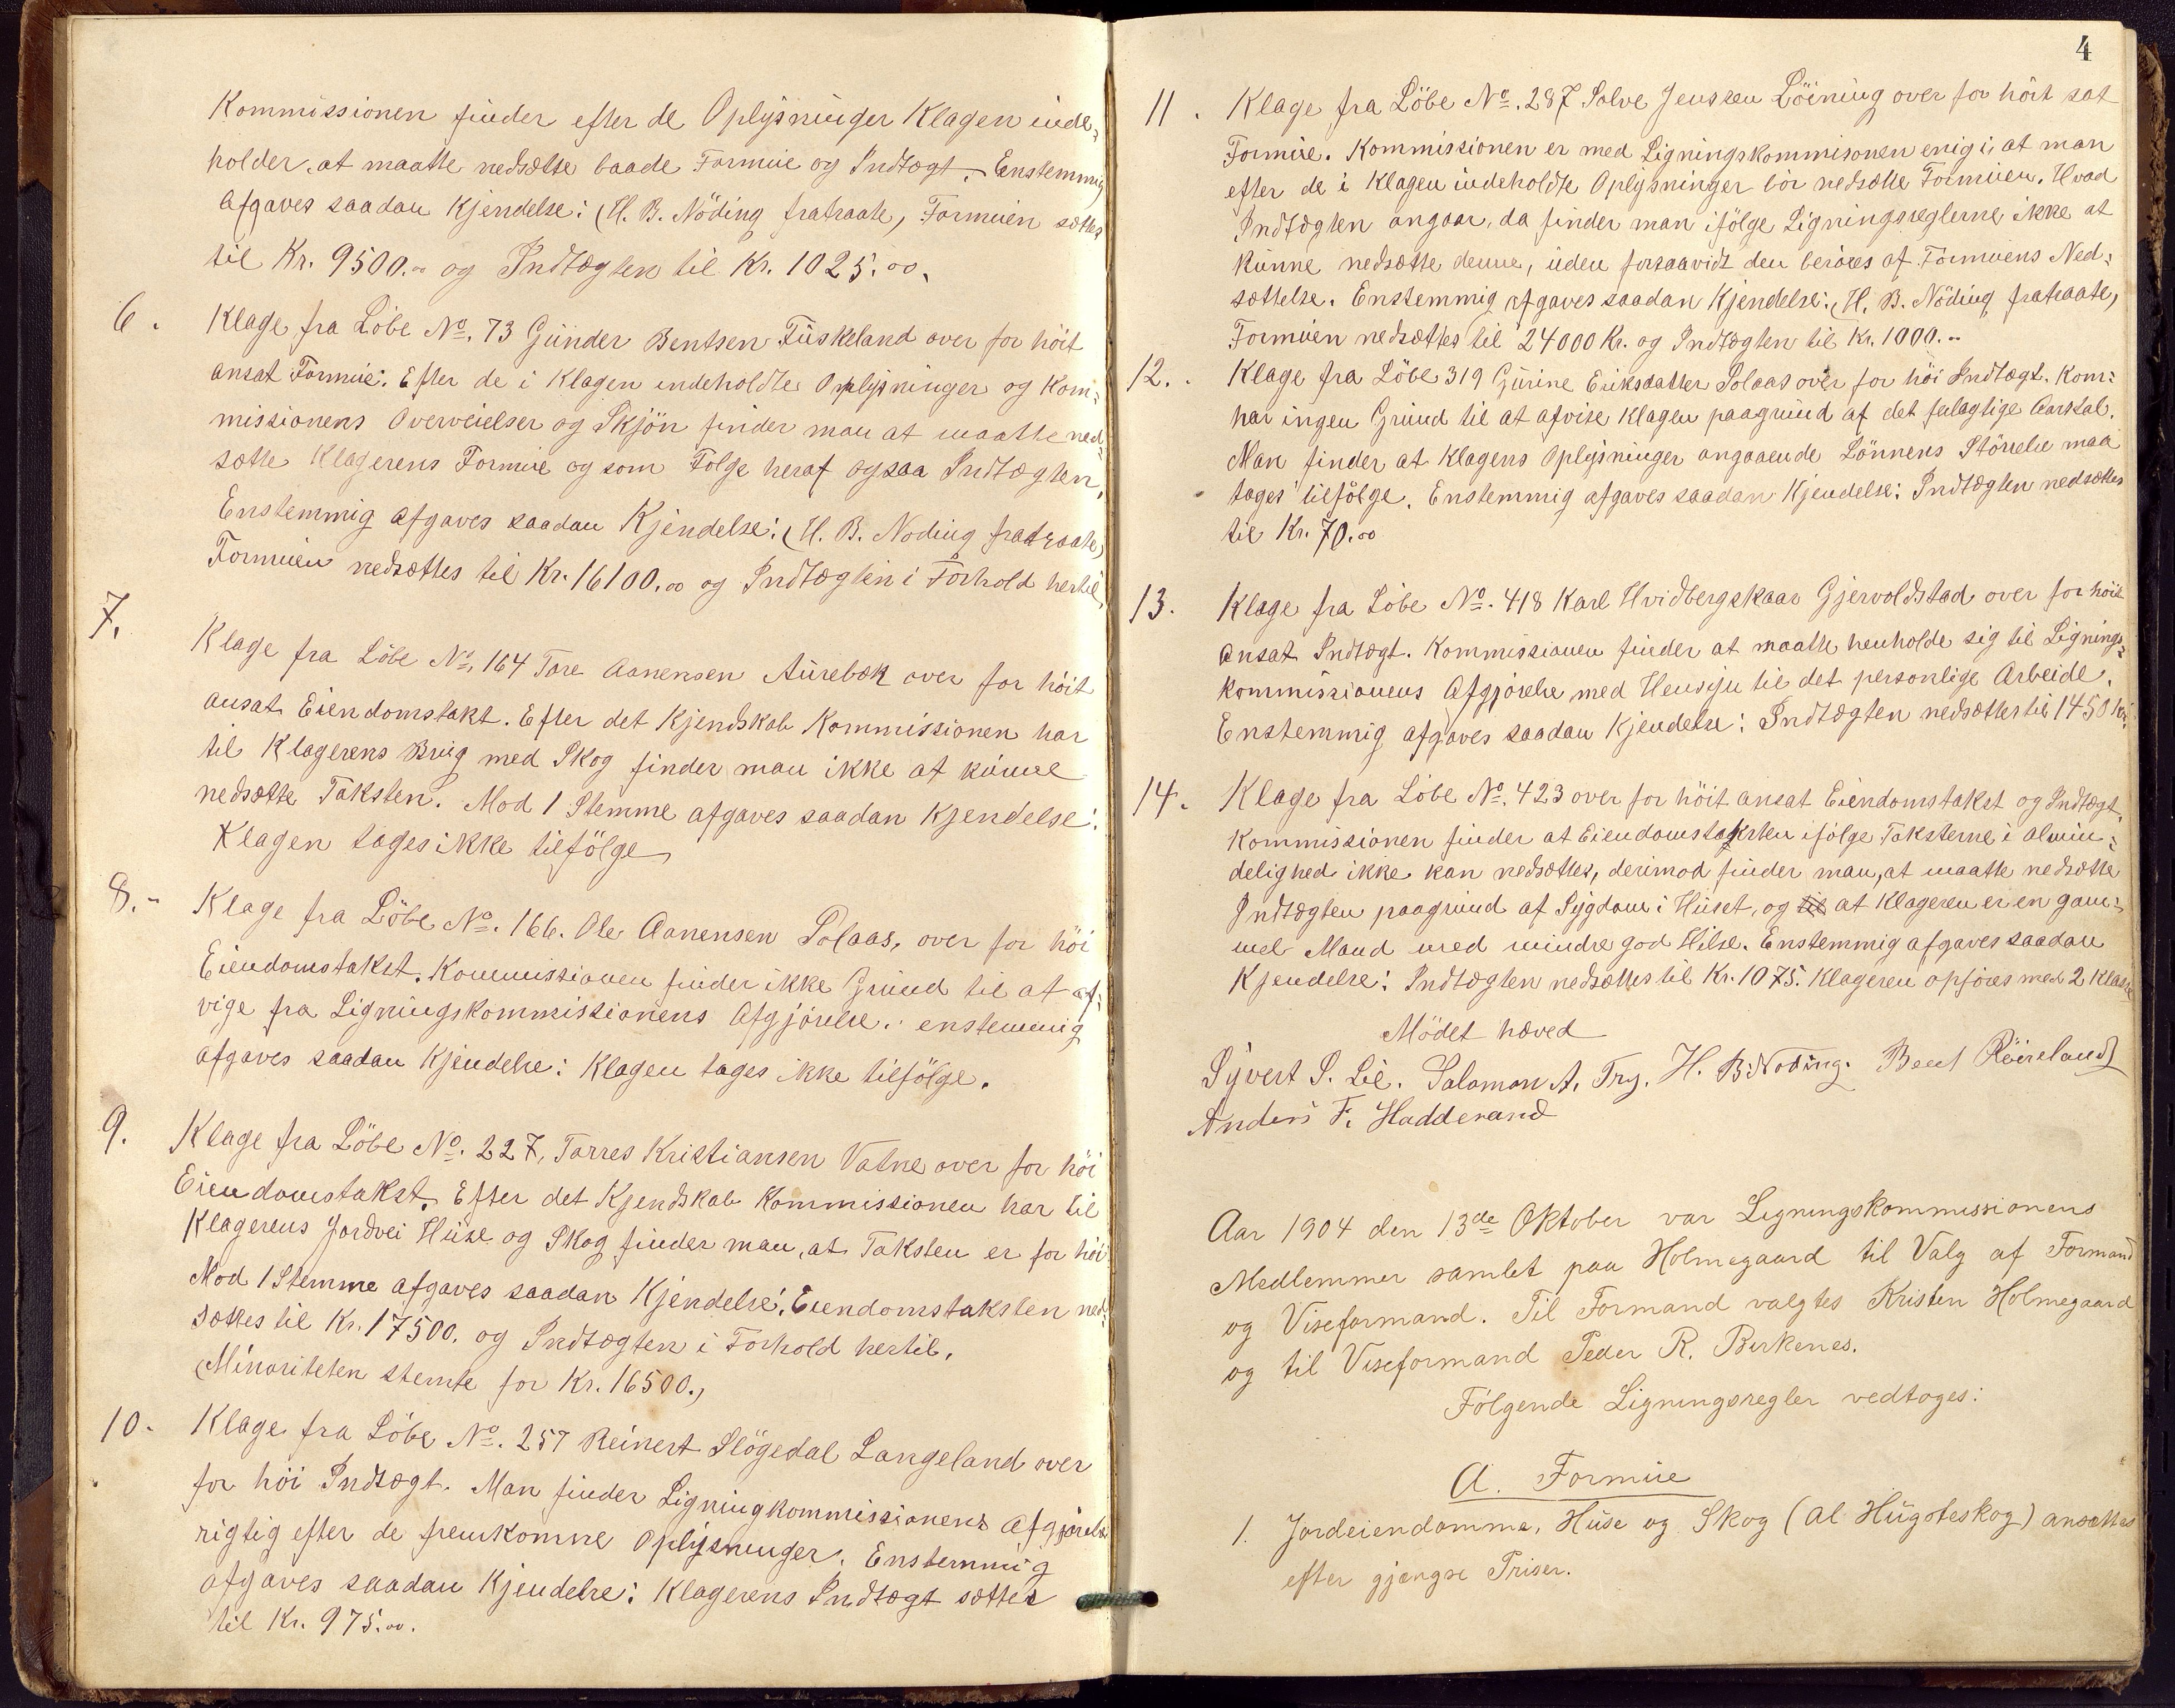 Kommissionen finder efter de Oplysninger Klagen inde-
holder, at maatte nedsætte baade Formue og Indtægt. Enstemmig
afgaves saadan Kjendelse: (H. B. Nöding fratraate, Formuen sættes
til Kr. 9500.00 og Indtægten til Kr. 1025.00.
6. Klage fra Löbe No. 73 Gunder Bentsen Fuskeland over for höit
ansat Formue. Efter de i Klagen indeholdte Oplysninger og Kom-
missionens Overveielser og Skjön finder man at maatte ned-
sætte Klagerens Formue og som Fölge heraf ogsaa Indtægten.
Enstemmig afgaves saadan Kjendelse: (H. B. Noding fratraate)
Formuen nedsættes til Kr. 16100.00 og Indtægten i Forhold hertil.
7.
Klage fra Löbe No. 164 Tore Aanensen Aurebæk over for höit
ansat Eiendomstakt. Efter det Kjendskab Kommissionen har
til Klagerens Brug med Skog finder man ikke at kunne
nedsætte Taksten. Mod 1 Stemme afgaves saadan Kjendelse:
Klagen tages ikke tilfölge
8.- Klage fra Löbe No. 166. Ole Aanensen Solaas, over for höi
Eiendomstakst. Kommissionen finder ikke Grund til at af-
vige fra Ligningskommissionens Afgjörelse. enstemmig
afgaves saadan Kjendelse: Klagen tages ikke tilfölge.
9. Klage fra Löbe No. 227, Tarres Kristiansen Vatne over for höi
Eiendomstakst. Efter det Kjendskab Kommissionen har til
Klagerens Jordvei Huse og Skog finder man, at Taksten er for höi.
Mod 1 Stemme afgaves saadan Kjendelse: Eiendomstaksten ned-
sættes til Kr. 17500. og Indtægten i Forhold hertil.
(Minoriteten stemte for Kr. 16500.)
10. Klage fra Löbe No. 257 Reinert Slögedal Langeland over
for höi Indtægt. Man finder Ligningkommissionens Afgjörelse
rigtig efter de fremkomne Oplysninger. Enstemmig
afgaves saadan Kjendelse: Klagerens Indtægt sættes
til Kr. 975.00.
4
11. Klage fra Löbe No. 287 Salve Jenssen Löining over for höit sat
Formue. Kommissionen er med Ligningskommisonen enig i, at man
efter de i Klagen indeholdte Oplysninger bör nedsætte Formuen. Hvad
Indtægten angaar, da finder man ifölge Ligningsreglerne ikke at
kunne nedsætte denne, uden forsaavidt den beröres af Formuens Ned-
sættelse. Enstemmig afgaves saadan Kjendelse: (H. B. Nöding fratraate,
Formuen nedsættes til 24000 Kr. og Indtægten til Kr. 1000.-
12. Klage fra Löbe 319 Gurine Eriksdatter Solaas over for höi Indtægt. Kom:
har ingen Grund til at afvise Klagen paagrund af det feilagtige Aarstal.
Man finder at Klagens Oplysninger angaaende Lönnens Störrelse maa
tages tilfölge. Enstemmig afgaves saadan Kjendelse: Indtægten nedsættes
til Kr. 70.00
13. Klage fra Löbe No. 418 Karl Hvidbergskaar Gjervoldstad over for höit
ansat Indtægt. Kommissionen finder at maatte henholde sig til Lignings-
kommissionens Afgjörelse med Hensyn til det personlige Arbeide.
Enstemmig afgaves saadan Kjendelse: Indtægten nedsættes til 1450 Kr.
14. Klage fra Löbe No. 423 over for höit ansat Eiendomstakst og Indtægt.
Kommissionen finder at Eiendomstaksten ifölge Taksterne i almin-
delighed ikke kan nedsættes, derimod finder man, at maatte nedsætte
Indtægten paagrund af Sygdom i Huset, og til at Klageren er en gam-
mel Mand med mindre god Hilse. Enstemmig afgaves saadan
Kjendelse: Indtægten nedsættes til Kr. 1075. Klageren opföres med 2 Klasse
Mödet hæved
Syvert S. Lie. Salamon A. Try. H. B. Noding. Bent Röireland
Anders F. Hadderand
Aar 1904 den 13de Oktober var Ligningskommissionens
Medlemmer samlet paa Holmegaard til Valg af Formand
og Viseformand. Til Formand valgtes Kristen Holmegaard
og til Viseformand Peder R. Birkenes.
Fölgende Ligningsregler vedtoges:
A. Formue
1. Jordeiendomme, Huse og Skog (al Hugsteskog) ansættes
efter gjængse Priser.